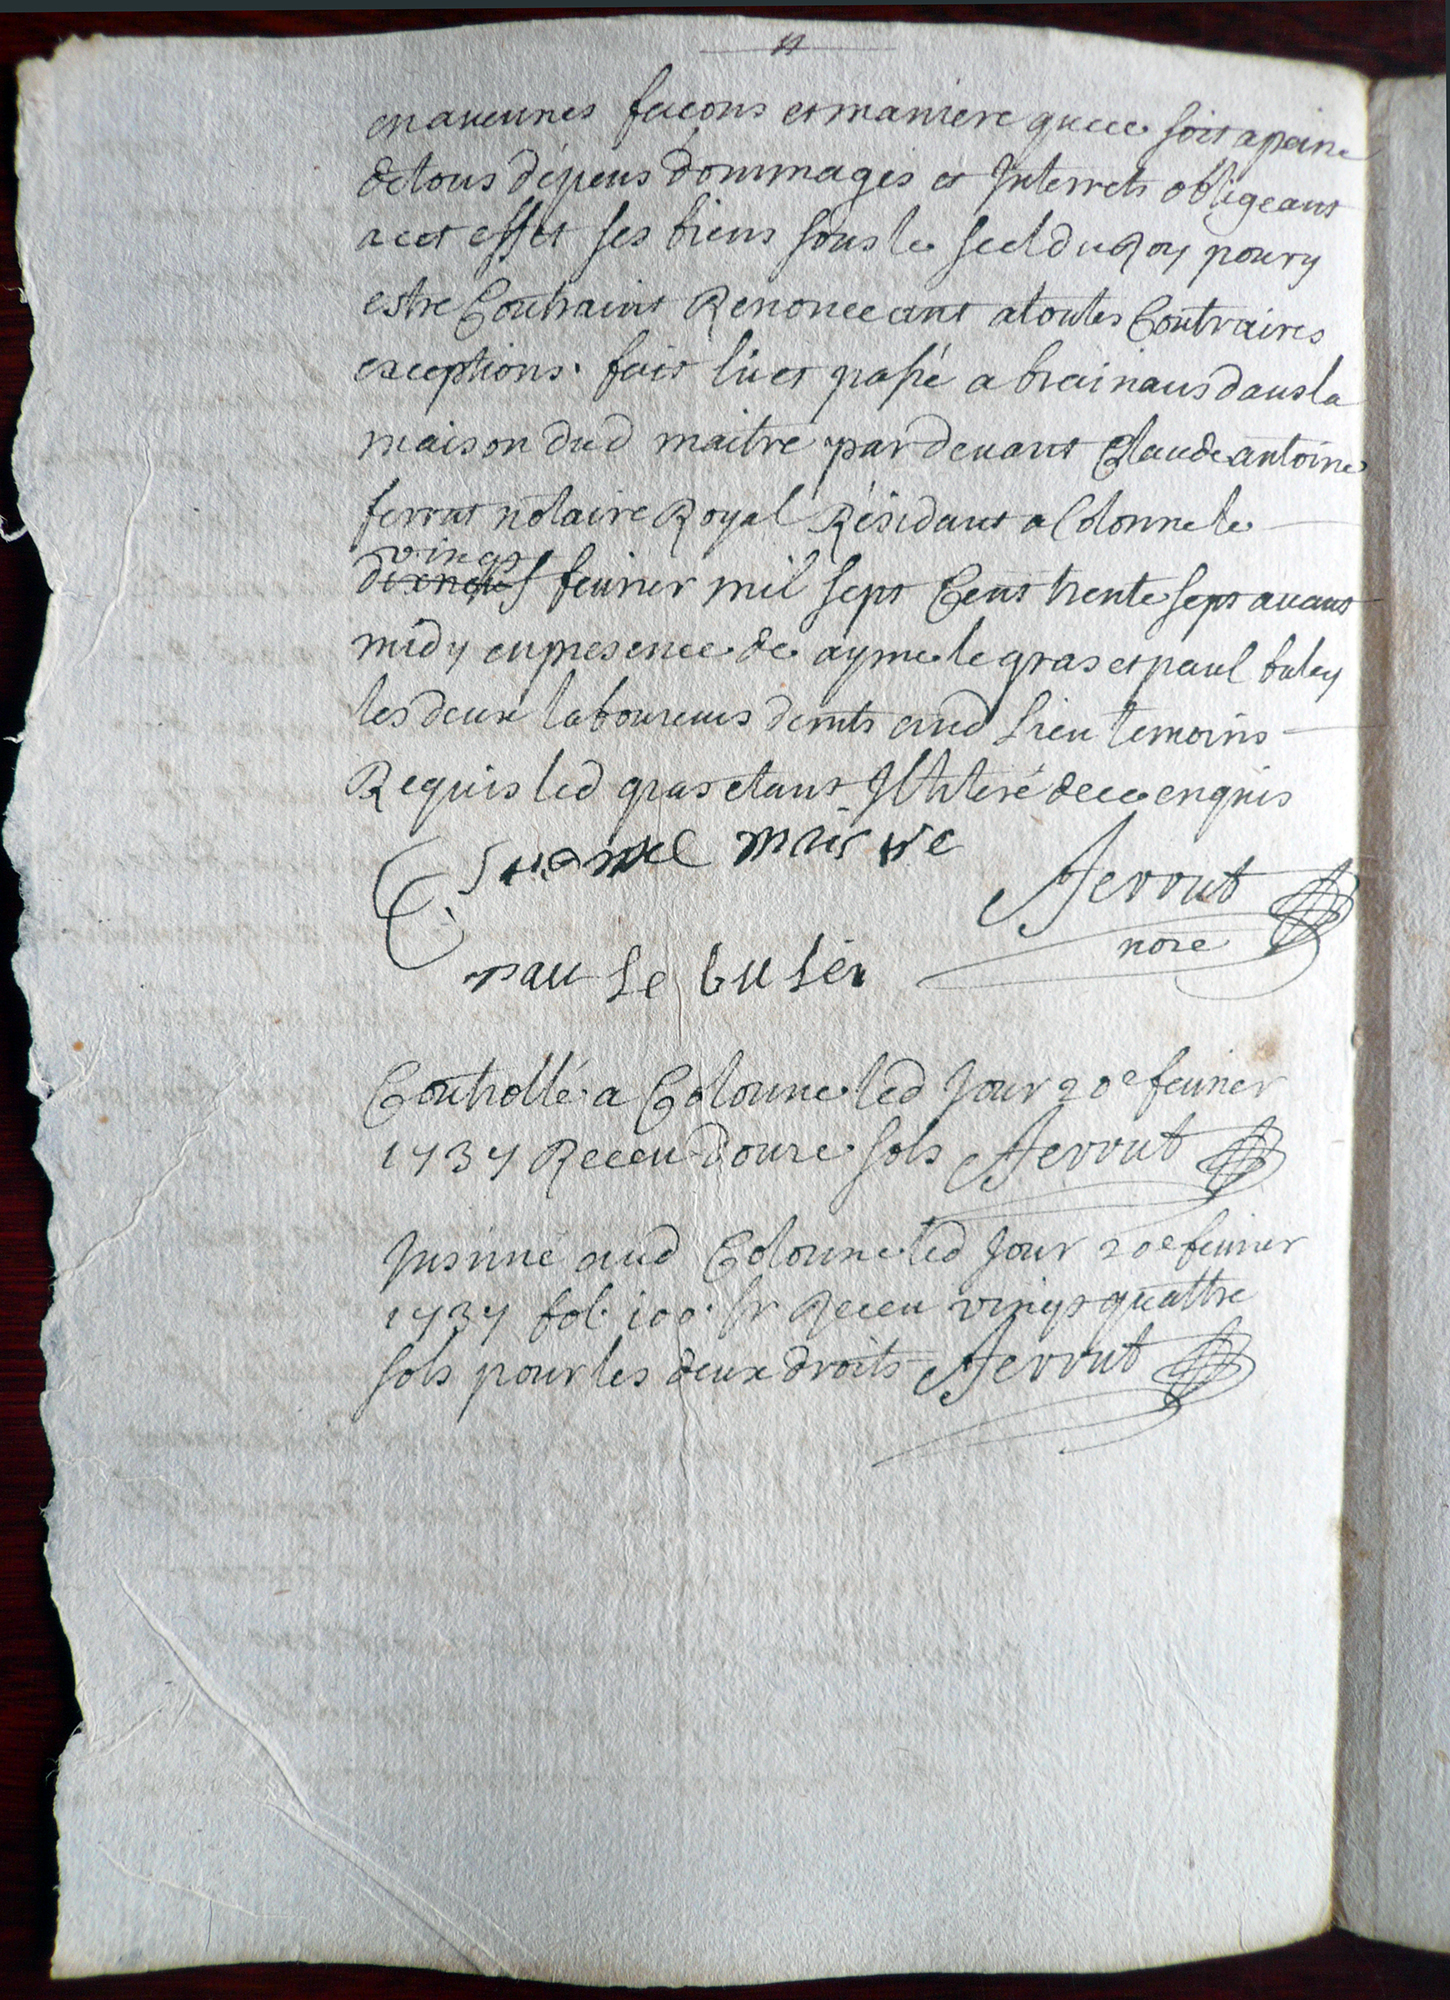 en aucunes facons et maniere que ce soit a peine
de tous dépens dommages et Interrets obligeant
a cet effet ses biens sous le scel du Roy pour y
estre Contraint Renonceant a toutes Contraires
exceptions. fait lû et passé a brainans dans la
maison dud maitre par devant Claude antoine
ferrut notaire Royal Résidant a Colonne le
vingt
dixneuf fevrier mil sept Cent trente sept avant
midy en presence de ayme le gras et paul buley
les deux laboureurs demts aud Lieu temoins
Requis led gras etant Illiteré de ce enquis
maistre
ferrut
nore
pau le bu lei
Controllé a Colonne led Jour 20e fevrier
1737 Receu douze sols ferrut
Insinué aud Colonne led Jour 20e fevrier
1737 fol. 100. Receu vingt quattre
sols pour les deux droits ferrut